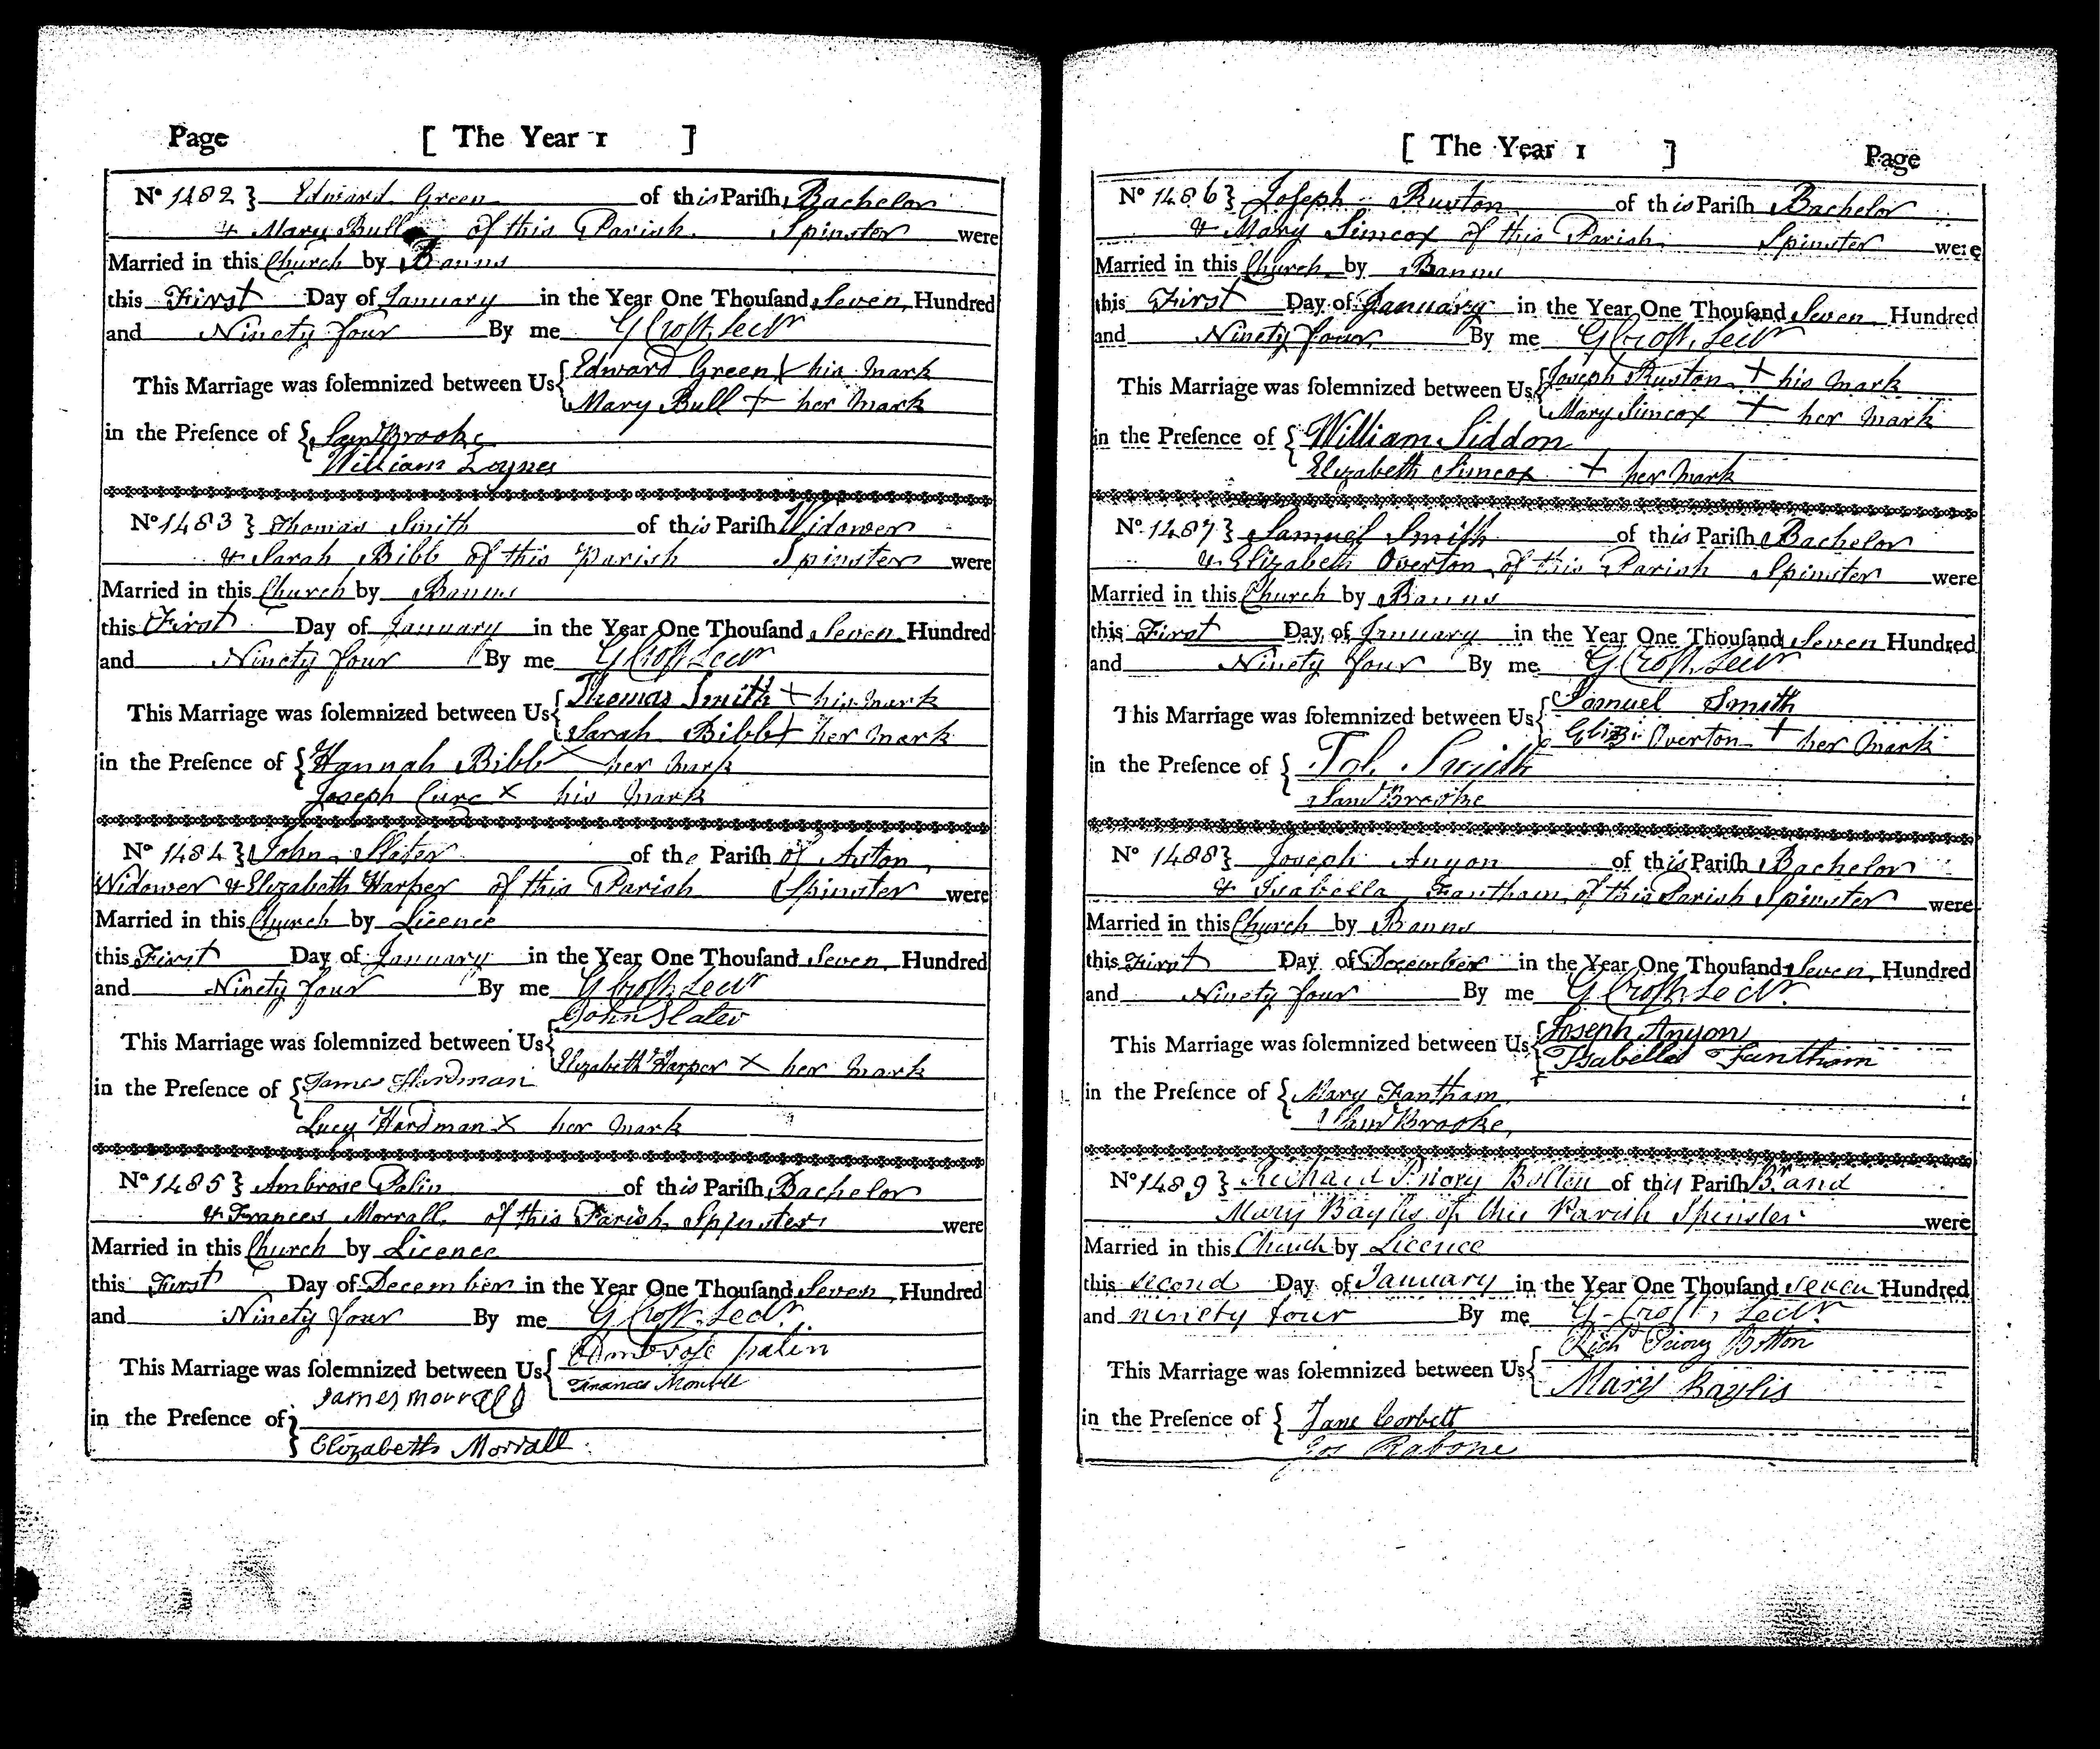 Page [ The Year 1 ]
No 1482 } Edward Green of this Pariſh, Bachelor
& Mary Bull of this Parish Spinster were
Married in this Church by Banns
this First Day of January in the Year One Thouſand Seven Hundred
and Ninety four By me G Croft, Lectr
This Marriage was ſolemnized between Us { Edward Green X his mark
Mary Bull + her mark
in the Preſence of { Saml Brooke
William Loynes
No 1483 } Thomas Smith of this Pariſh Widower
& Sarah Bibb of this Parish Spinster were
Married in this Church by Banns
this First Day of January in the Year One Thouſand Seven Hundred
and Ninety four By me G Croft Lectr
This Marriage was ſolemnized between Us { Thomas Smith + his mark
Sarah Bibb + her mark
in the Preſence of { Hannah Bibb X her mark
Joseph X his mark
No 1484 } John Slater of the Pariſh of Aston,
Widower & Elizabeth Harper of this Parish Spinster were
Married in this Church by Licence
this First Day of January in the Year One Thouſand Seven Hundred
and Ninety four By me G Croft, Lectr
This Marriage was ſolemnized between Us { John Slater
Elizabeth Harper X her mark
in the Preſence of { James Hardman
Lucy Hardman X her mark
No 1485 } Ambrose Palin of this Pariſh, Bachelor
& Frances Morrall of this Parish Spinster were
Married in this Church by Licence
this First Day of December in the Year One Thouſand Seven Hundred
and Ninety four By me G Croft, Lectr.
This Marriage was ſolemnized between Us { Ambrose palin
Frances Morrall
James Morrall
in the Preſence of }
Elizabeth Morrall
[ The Year 1 ] Page
No 1486 } Joseph Ruston of this Pariſh Bachelor
& Mary Simcox of this Parish Spinster were
Married in this Church by Banns
this First Day of January in the Year One Thouſand Seven Hundred
and Ninety four By me G Croft, Lectr
This Marriage was ſolemnized between Us { Joseph Ruston + his mark
Mary Simcox + her mark
in the Preſence of { William Siddon
Elizabeth Simcox + her mark
No 1487 } Samuel Smith of this Pariſh Bachelor
& Elizabeth Overton of this Parish Spinster were
Married in this Church by Banns
this First Day of January in the Year One Thouſand Seven Hundred
and Ninety four By me G Croft, Lectr
This Marriage was ſolemnized between Us { Samuel Smith
Eliz: Overton + her mark
in the Preſence of { Smith
Saml Brooke
No 1488 } Joseph Anyon of this Pariſh Bachelor
& Isabella Fantham, of this Parish Spinster were
Married in this Church by Banns
this First Day of December in the Year One Thouſand Seven Hundred
and Ninety four By me G Croft, Lectr.
This Marriage was ſolemnized between Us { Joseph Anyon
Isabella Fantham
in the Preſence of { Mary Fantham
Saml Brooke,
No 1489 } Richard Priory Bolton of this Pariſh Br. and
Mary Baylis of this Parish Spinster were
Married in this Church by Licence
this second Day of January in the Year One Thouſand seven Hundred
and ninety four By me G. Croft, Lectr.
Richd Priory Bolton
This Marriage was ſolemnized between Us {
Mary Baylis
in the Preſence of { Jane Corbett
Jos Rabone